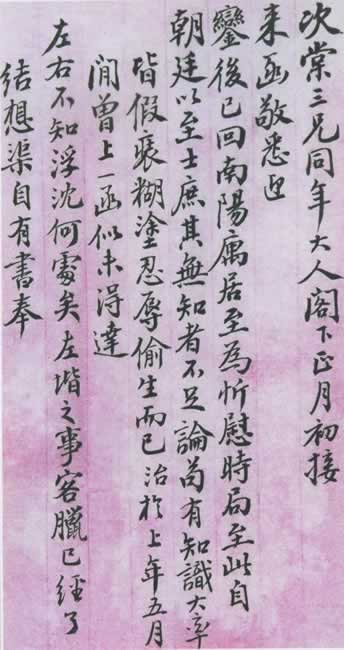 次棠三兄同年大人閣下正月初接
来函敬悉迎
鑾後已回南陽寓居至為忻慰時局至此自
朝廷以至士庶其無知者不足論苟有知識大率
皆假寐糊塗忍辱偷生而已治於上年五月
間曾上一函似未得達
左右不知浮沈何處矣左楷之事客臘已經了
結想渠自有書奉